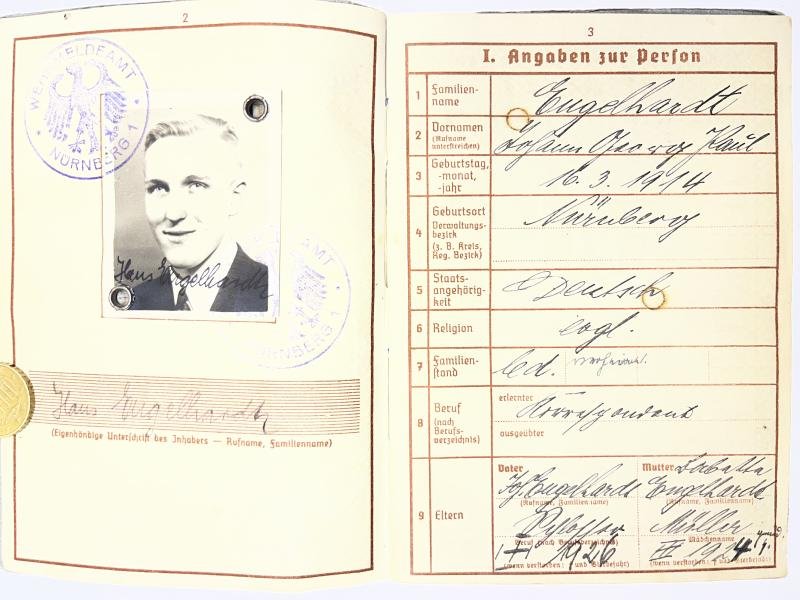 2
WEHRMELDEAMT
NÜRNBERG 1
Hans Engelhardt
AMT
NÜRNBERG 1
Hans Engelhardt
(Eigenhändige Unterschrift des Inhabers — Rufname, Familienname)
3
I. Angaben zur Person
1 Familien-
name
Engelhardt
2 Vornamen
(Rufname
unterstreichen)
Johann Georg Paul
3 Geburtstag,
-monat,
-jahr
16. 3. 1914
4 Geburtsort
Verwaltungs-
bezirk
(z. B. Kreis,
Reg. Bezirk)
Nürnberg
5 Staats-
angehörig-
keit
Deutsch
6 Religion
evgl.
7 Familien-
stand
led. verheirat.
8 Beruf
(nach
Berufs-
verzeichnis)
erlernter
Korrespondent
ausgeübter
9 Eltern
Vater
Joh. Engelhardt
(Rufname, Familienname)
Schlosser
Beruf (nach Berufsverzeichnis)
1926
(wenn verstorben: † und Sterbejahr)
Mutter Babetta
Engelhardt
(Rufname, Familienname)
Müller
Mädchenname
1924
(wenn verstorben: † und Sterbejahr)